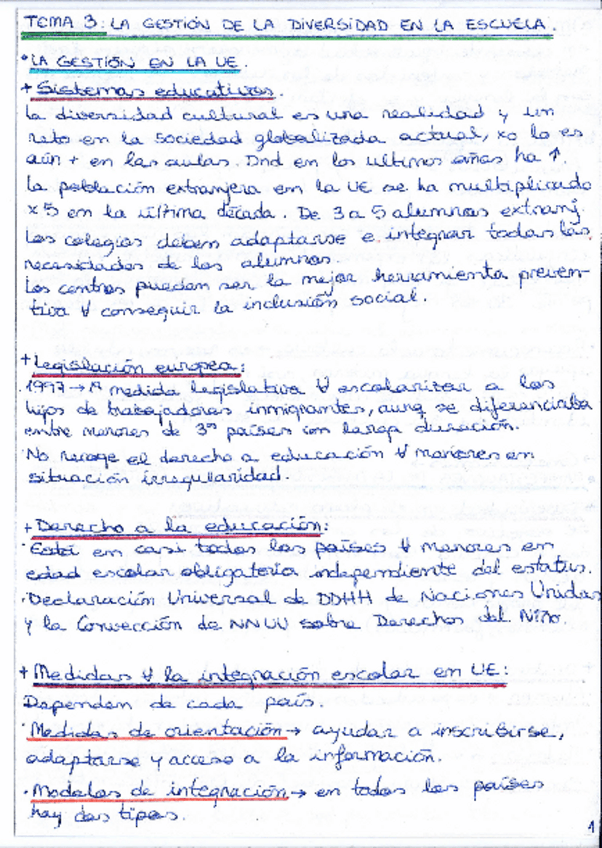 TEMA 3: LA GESTIÓN DE LA DIVERSIDAD EN LA ESCUELA.
• LA GESTIÓN EN LA UE.
+ Sistemas educativos.
La diversidad cultural es una realidad y un
reto en la sociedad globalizada actual, xo lo es
aún + en las aulas. Dnd en los ultimos años ha ↑.
La población extranjera em la UE se ha multiplicado
x 5 en la última década. De 3 a 5 alumnos extranj.
Los colegios deben adaptarse e integrar todas las
necesidades de los alumnos.
Los centros pueden ser la mejor herramienta preven-
tiva ∀ conseguir la inclusión social.
+ Legislación europea:
1997 → 1ª medida legislativa ∀ escolarizar a los
hijos de trabajadores inmigrantes, aunq se diferenciaba
entre menores de 3os países con larga duración.
·No recoge el derecho a educación ∀ menores en
situación irregularidad.
+ Derecho a la educación:
·Está en casi todos los países ∀ menores en
edad escolar obligatoria independiente del estatus.
·Declaración Universal de DDHH de Naciones Unidas
y la Convección de NNUU sobre Derechos del Niño.
+ Medidas ∀ la integración escolar en UE:
Dependen de cada país.
·Medidas de orientación → ayudar a inscribirse,
adaptarse y acceso a la información.
·Modelos de integración → en todos los países
hay dos tipos.
1